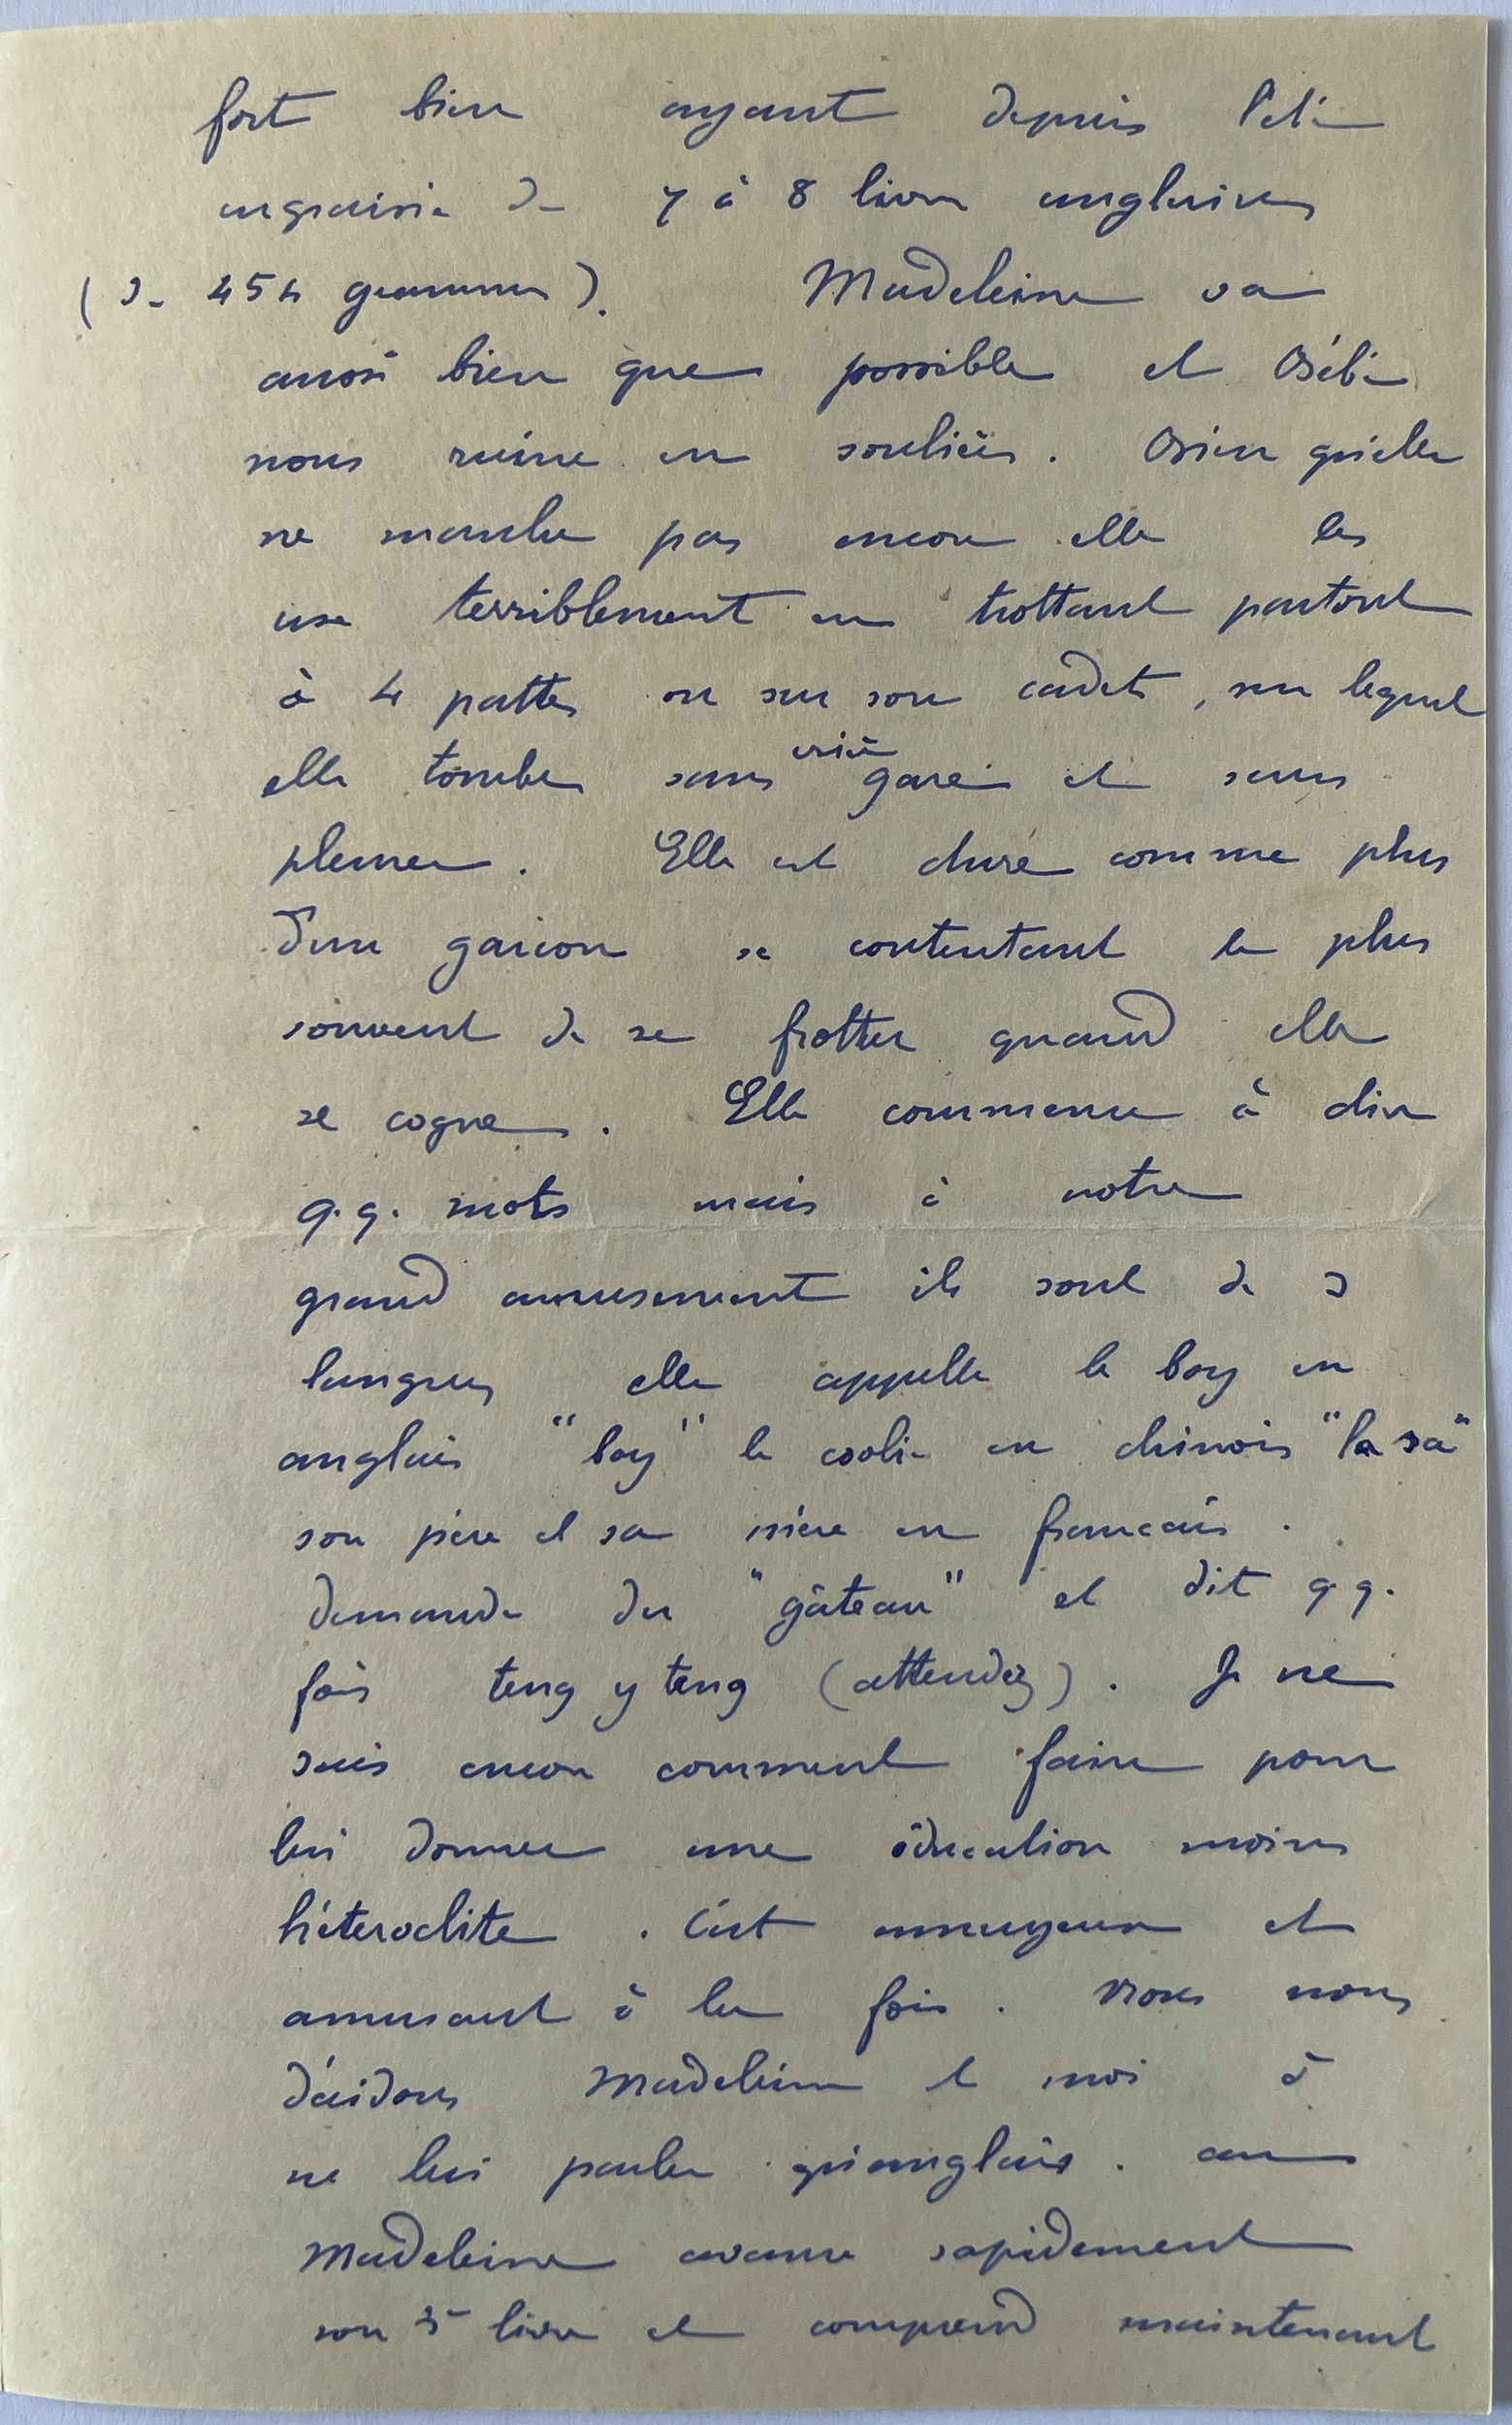 fort bien ayant depuis l'été
engraissé de 7 à 8 livres anglaises
(de 454 grammes). Madeleine va
aussi bien que possible et Bébé
nous ruine en souliers. Bien qu'elle
ne marche pas encore elle les
use terriblement en trottant partout
à 4 pattes ou sur son cadet, sur lequel
elle tombe sans crier gare et sans
pleurer. Elle est dure comme plus
d'un garçon se contentant le plus
souvent de se frotter quand elle
se cogne. Elle commence à dire
q.q. mots mais à notre
grand amusement ils sont de 3
langues elle appelle le boy en
anglais "boy" le coolie en chinois "la sa"
son père et sa mère en français.
demande du "gâteau" et dit q.q.
fois teng y teng (attendez). Je ne
sais encore comment faire pour
lui donner une éducation moins
hétéroclite. C'est ennuyeux et
amusant à la fois. Nous nous
décidons Madeleine et moi à
ne lui parler qu'anglais. car
Madeleine avance rapidement
son 3e livre et comprend maintenant